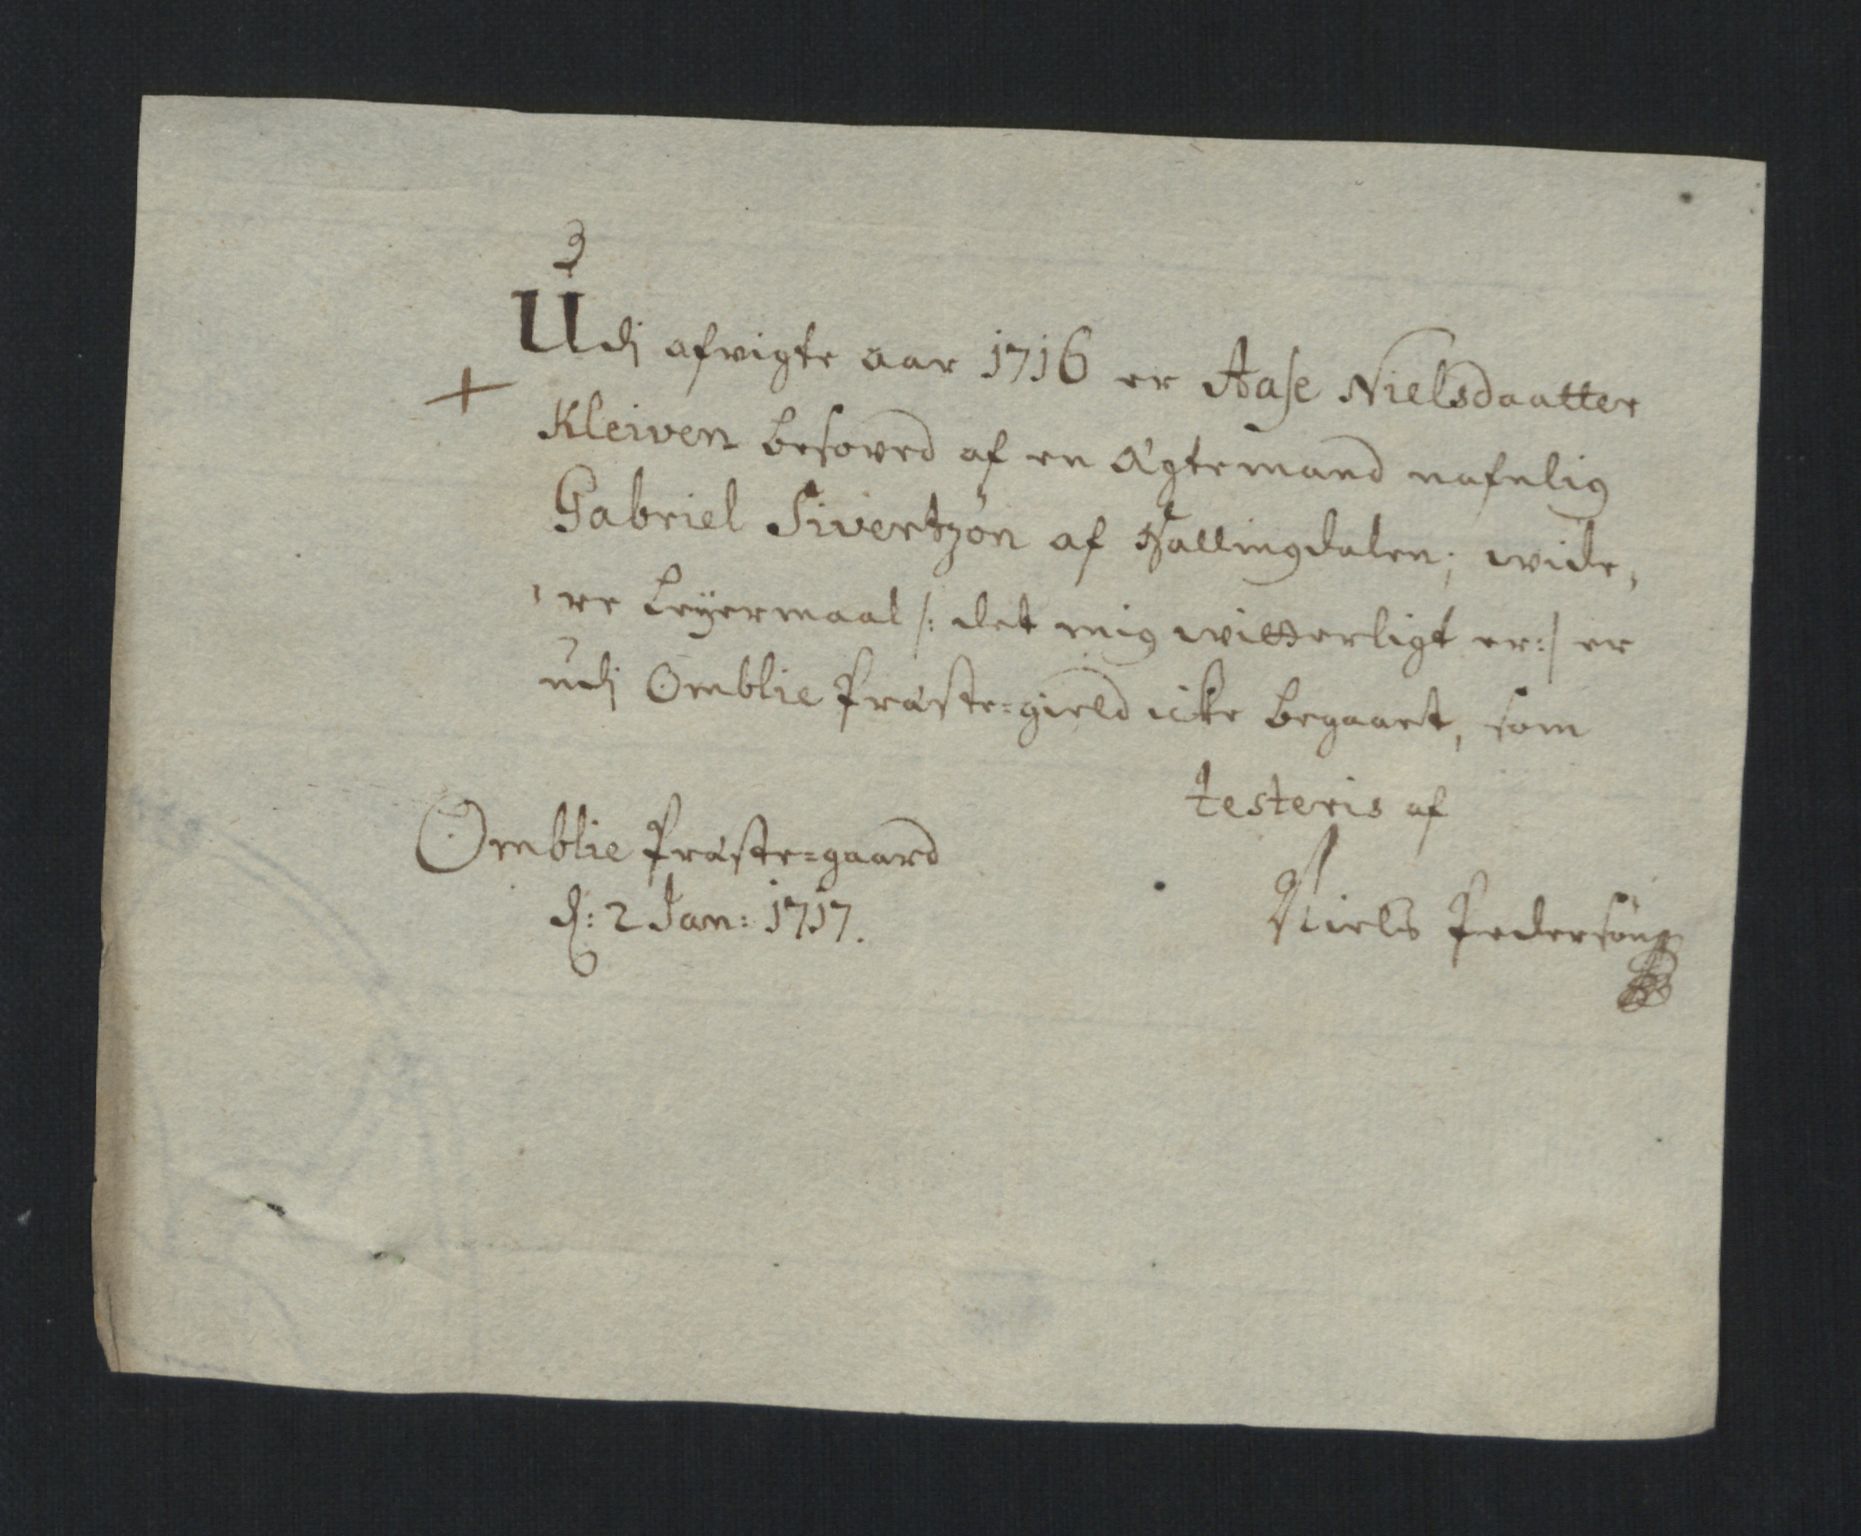 Udj afvigte aar 1716 er Aase Nielsdaatter
+ Kleiven besoved af en Ægtemand nafnlig
Gabriel Sivertzøn af Hallingdalen; wide,
,re Leyermaal /: det mig witterligt er :/ er
udj Omblie Præste=gield icke begaaet, som
testeris af
Omblie Præste=gaard
d: 2 Jan: 1717.
Niels Pedersøn